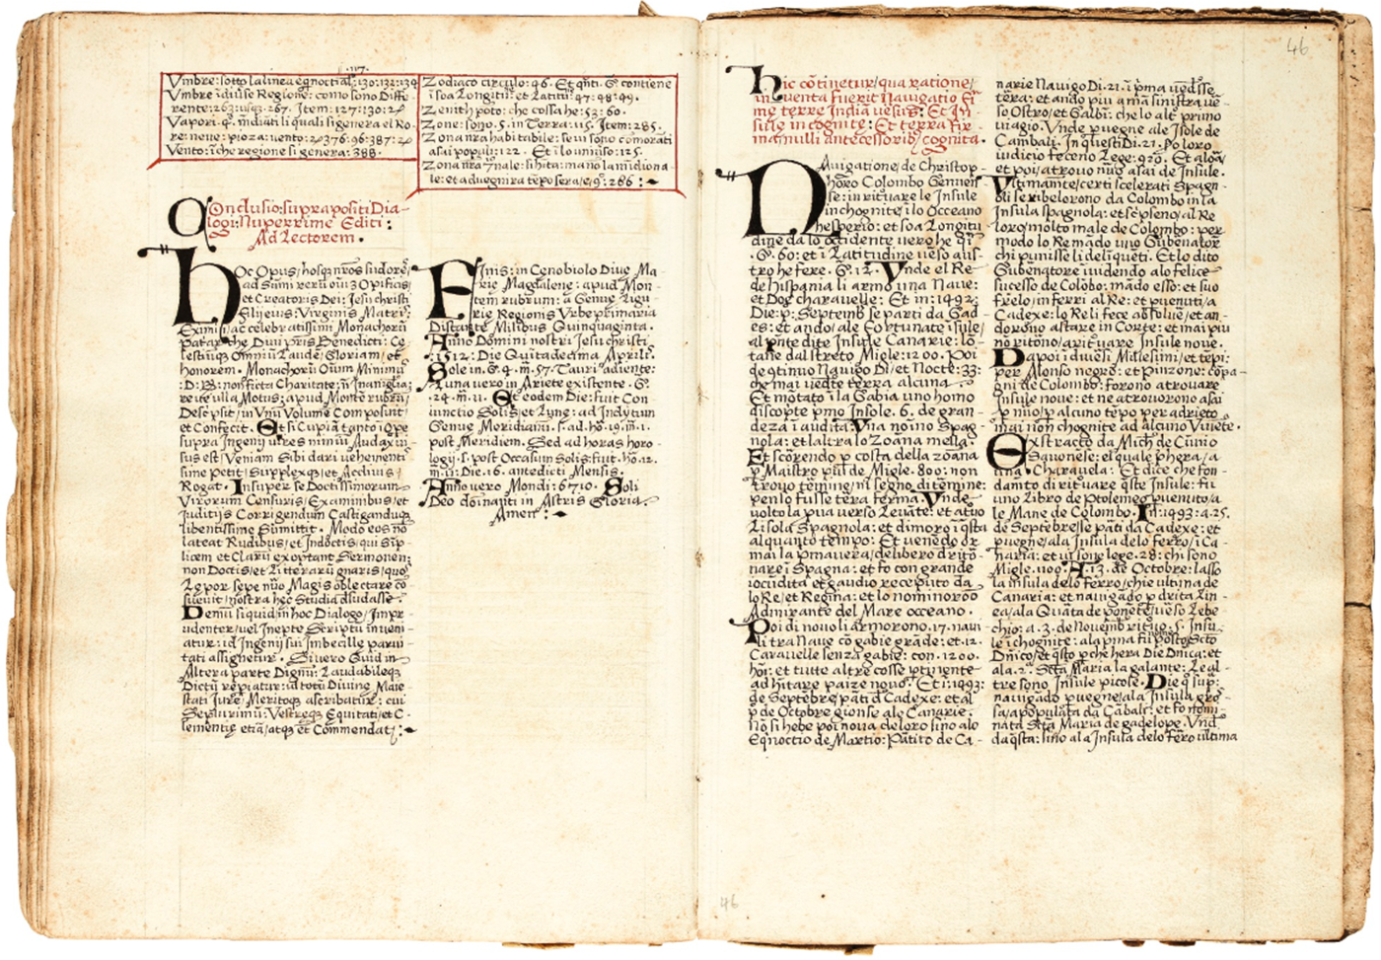 .117.
Vmbre: sotto la linea eqnoctial: 130: 132: 134
Vmbre i diuse Regione: como sono Diffe-
rente: 263: usq: 267. Item: 127: 130: 
Vapori. q. mediati li quali si genera el Ro-
re: neue: pioza: vento: 376: 96: 387:
Vento: i che regione si genera: 388.
Zodiaco circulo: 46. Et qnti. G. contiene
i soa Longitu: et Latitu: 47: 48: 49.
Zenith poto: che cossa he: 53: 60.
Zone: sono. 5. in Terra: 115. Item: 285.
Zona nra habitabile: se vi sono comorati
asai populi: 122. Et i lo uniuso: 125.
Zona nra nale: si hita: mano la midiona-
le: et aduegnira tepo sera, e, 9: 286:
Conclusio: supra positi Dia-
logi: Nuperrime Editi:
Ad Lectorem.
Hoc Opus, hosq nros sudore,
ad Sumi rerum oium Opificis,
et Creatoris Dei: Jesu christi
Filij eius: Virginis Matris:
Eximij, ac celebratissimi Monachorum
Patriarche Diui pris Benedicti: Ce-
lestiumq Omnium Laude, Gloriam, et
honorem. Monachorum Oium Minimus
:D:B: non ficta Charitate: Inani gloria:
reue ulla Motus: apud Monte rubru,
Descpsit, in Vnum Volume Composuit,
et Confecit. Et si Cupia tanto i Ope
supra Ingenij uires nimiu Audax iu-
sus est, Veniam Sibi dari uehementis-
sime Petit, Supplexq, et Accliuis,
Rogat. Insuper se Doctissimorum
Virorum Censuris, Examinibus, et
Juditijs Corrigendum Castigandumq
libentissime Sumittit. Modo eos no
lateat Rudibus, et Indoctis, qui Sip-
licem et Claru exoptant Sermonem:
non Doctis, et Litterarum gnaris, quos
Lepor sepe nuo Magis oblectare co-
sueuit, nostra hec Studia dsudasse.
Demu siquid in hoc Dialogo, Impr-
udenter, vel Inepte Scriptu inueni-
atur: id Ingenij sui imbecille parui-
tati assignetur. Si uero Quid in
Altera parte Dignu: Laudabileq
Dictu repiatur: id totu Diuine Maie-
stati Jure, Meritoq ascribatur: cui
Seq plurimu: Vestreq Equitati, et C-
lementie etia, atq et Commendat:
Finis: in Cenobiolo Diue Ma-
rie Magdalene: apud Mon-
tem rubrum: a Genue, Ligu-
rie Regionis Vrbe primaria
Distante Milibus Quinquaginta.
Anno Domini nostri Jesu christi
.1512: Die Quitadecima Aprilis.
Sole in. G. 4. m. 57. Tauri adiente:
Luna vero in Ariete existente. G.
.24. m. 11. Et eodem Die: fuit Con-
iunctio Solis, et Lune: ad Indytum
Genue Meridianu. s. ad. ho. 19. m. 1.
post Meridiem. Sed ad horas horo-
logij. s. post Occasum Solis: fuit. ho. 12.
m. 11: Die. 16. antedicti Mensis.
Anno vero Mondi: 6710. Soli
Deo do inaiti in Astris Gloria.
Amen:
46
Hic cotinetur, qua ratione,
inuenta fuerit Nauigatio Fi-
me terre India uesus: Et Qn-
sule incognite: Et terra Fir-
ma, nulli antecessorio, cognita.
Nauigatione, de Christop-
horo Colombo Genuen-
se: in rituare le Insule
inchognite i lo Occeano
hesperio: et soa Longitu-
dine da lo occidente uero he q
.G. 60: et i Latitudine ueso aus-
tro he fere. G. 12. Vnde el Re
de hispania li armo una Naue:
et Doe charauelle: Et in: 1492:
Die: p: Septemb se parti da Gad-
es: et ando, ale Fortunate isule,
al pnte dite Insule Canarie: lo-
tane dal streto Migle: 1200. Poi
de gtinuo Nauigo Di, et Nocte: 33:
che mai uedete terra alcuna.
Et motato i la Gabia uno homo
discopte pmo Insole. 6. de gran-
deza i audita: Vna no ino Spag-
nola: et la ltra lo Zoana mella.
Et scorendo p costa della zoana
p Maistro pu de Migle. 800: non
trouo termine, ni segno di termine:
penlo fusse terra ferma. Vnde
uolto la pua uerso Leuate: et atuo
Lisola Spagnola: et dimoro i qsta
alquanto tempo: Et venedo dr-
mai la pmauera, delibero di rito-
nare i Spagna: et fo con grande
iocudita et gaudio receputo da
lo Re, et Regina: et lo nominoroo
Admirante del Mare oceano.
Poi di nouo li armorono. 17. naui
li tra Naue co gabie grade: et. 12.
Carauelle senza gabie: con. 1200.
hoi: et tutte altre cosse ptinente
ad hitare paize nouo. Et i: 1493:
de Septebre pati d Cadexe: et al
p de Octobre gionse ale Canarie.
No si hebe poi noua de loro fino alo
Eqnoctio de Martio: Patito de Ca-
narie Nauigo Di. 21. i pma uedesse
tera: et ando piu a ma sinistra ue-
so Ostro, et Galbi: che lo alt primo
uiagio. Vnde puegne ale Isole de
Cambali. In questi Di. 21. Po loro
iudicio feceno Lege: 920. Et aloa,
et poi, atrouo nuo asai de Insule.
Vltimamete, certi scelerati Spagn-
oli se ribelorono da Colombo in la
Insula spagnola: et se pseno, al Re
loro, molto male de Colombo: per
modo lo Remado uno Gubenator
chi punisse li deliqueti. Et lo dito
Gubenatore inuidendo alo felice
sucesso de Colobo: mado esso: et suo
frelo, in ferri al Re: et puenuti, a
Cadexe: lo Re li fece absolue, et an-
dorono astare in Corte: et mai piu
no ritono, arituare Insule noue.
Dapoi i diuesi Millesimi, et tepi:
per Alonso negro: et Pinzone: copa-
gni de Colombo: forono atrouare
Insule noue: et ne atrouorono asai
p nuo, p alcuno tepo per adrieto
mai non chognite ad alcuno Viuete.
Exstracto da Mich de Cunio
Sauonese: el quale phgera, a
una, Charauela: Et dice che fon-
damto di rituare qste Insule: fu
uno Libro de Ptolemeo puenuto, a
le Mane de Colombo. In: 1493: a. 25.
de Septebre, se pati da Cadexe: et
puegne, ala Insula delo ferro, i Ca-
naria: et ui sono lege. 28: chi sono
Migle. 1109. A. 13. de Octobre: lasso
la insula delo Ferro, chie ultima de
Canaria: et nauigado p drita Lin-
ea, ala Quata de ponete, ueso Lebe-
chio: a. 3. de Nouemb rituo. 5. Insu-
le i chognite: ala pma fu posto nome Scto
Dnico, et qsto p che hera Die Dnica: et
ala. 2. Scta Maria la galante: Le al-
tre sono Insule picole. Die q sup:
nauigado puegne, ala Insula gro-
sa, apopulata da Cabali: et fo nomi-
nata Scta Maria de gadelope. Vnd-
da qsta: fino ala Insula delo Fero ultima
46